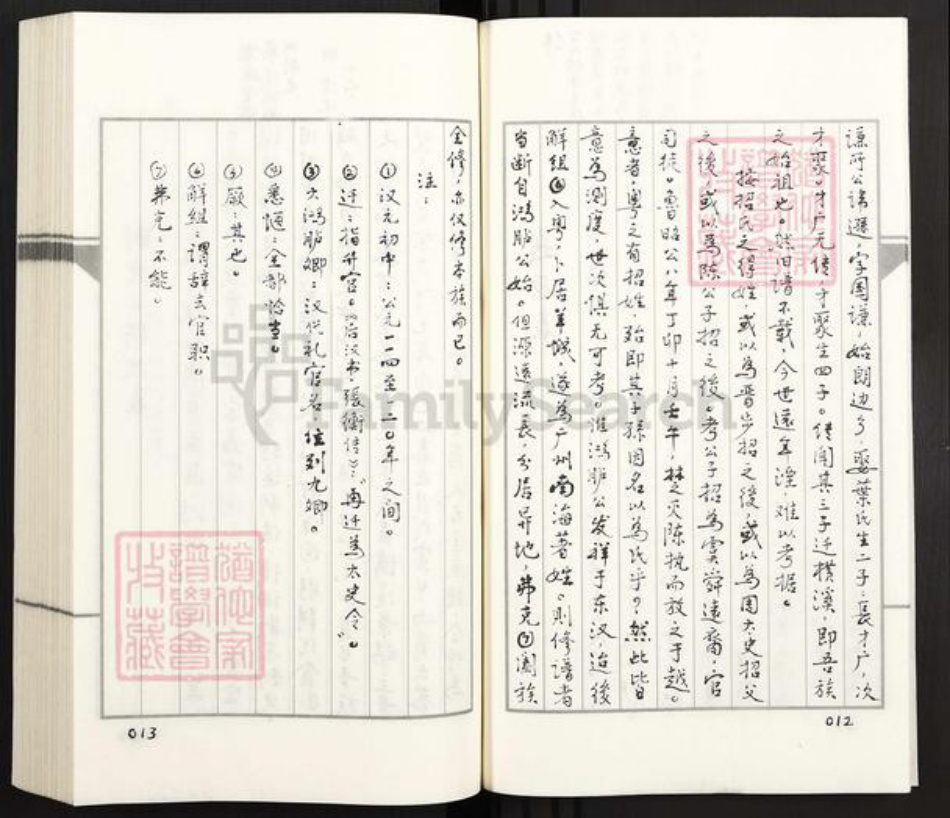 谦所公讳选，字图谦，始朗边乡，娶葉氏生二子：長才广，次
才聚。才广无传，才聚生四子。传闻其三子迁横溪，即吾族
之始祖也。然旧谱不载，今世遠年湮，难以考据。
按招氏之得姓，或以為晋步招之後，或以為周大史招父
之後，或以為陈公子招之後。考公子招為虞舜遠裔，官
司徒。鲁昭公八年丁卯十月壬午，楚之灭陈执而放之于越。
意者，粤之有招姓，殆即其子孫因名以為氏乎？然此皆
意為测度，世次俱无可考。惟鸿胪公发祥于东汉，迨後
解组⑥入粤，卜居羊城，遂為广州南海著姓。则修谱者
当断自鸿胪公始。但源遠流長，分居异地，弗克⑦阖族
012
全修，亦仅修本族而已。
注：
①汉元初中：公元一一四至一二〇年之间。
②迁：指升官。《后汉书·張衡传》：“再迁為太史令”。
③大鸿胪卿：汉代礼官名，位列九卿。
④悉惬：全部恰当。
⑤厥：其也。
⑥解组：谓辞去官职。
⑦弗克：不能。
013
FamilySearch